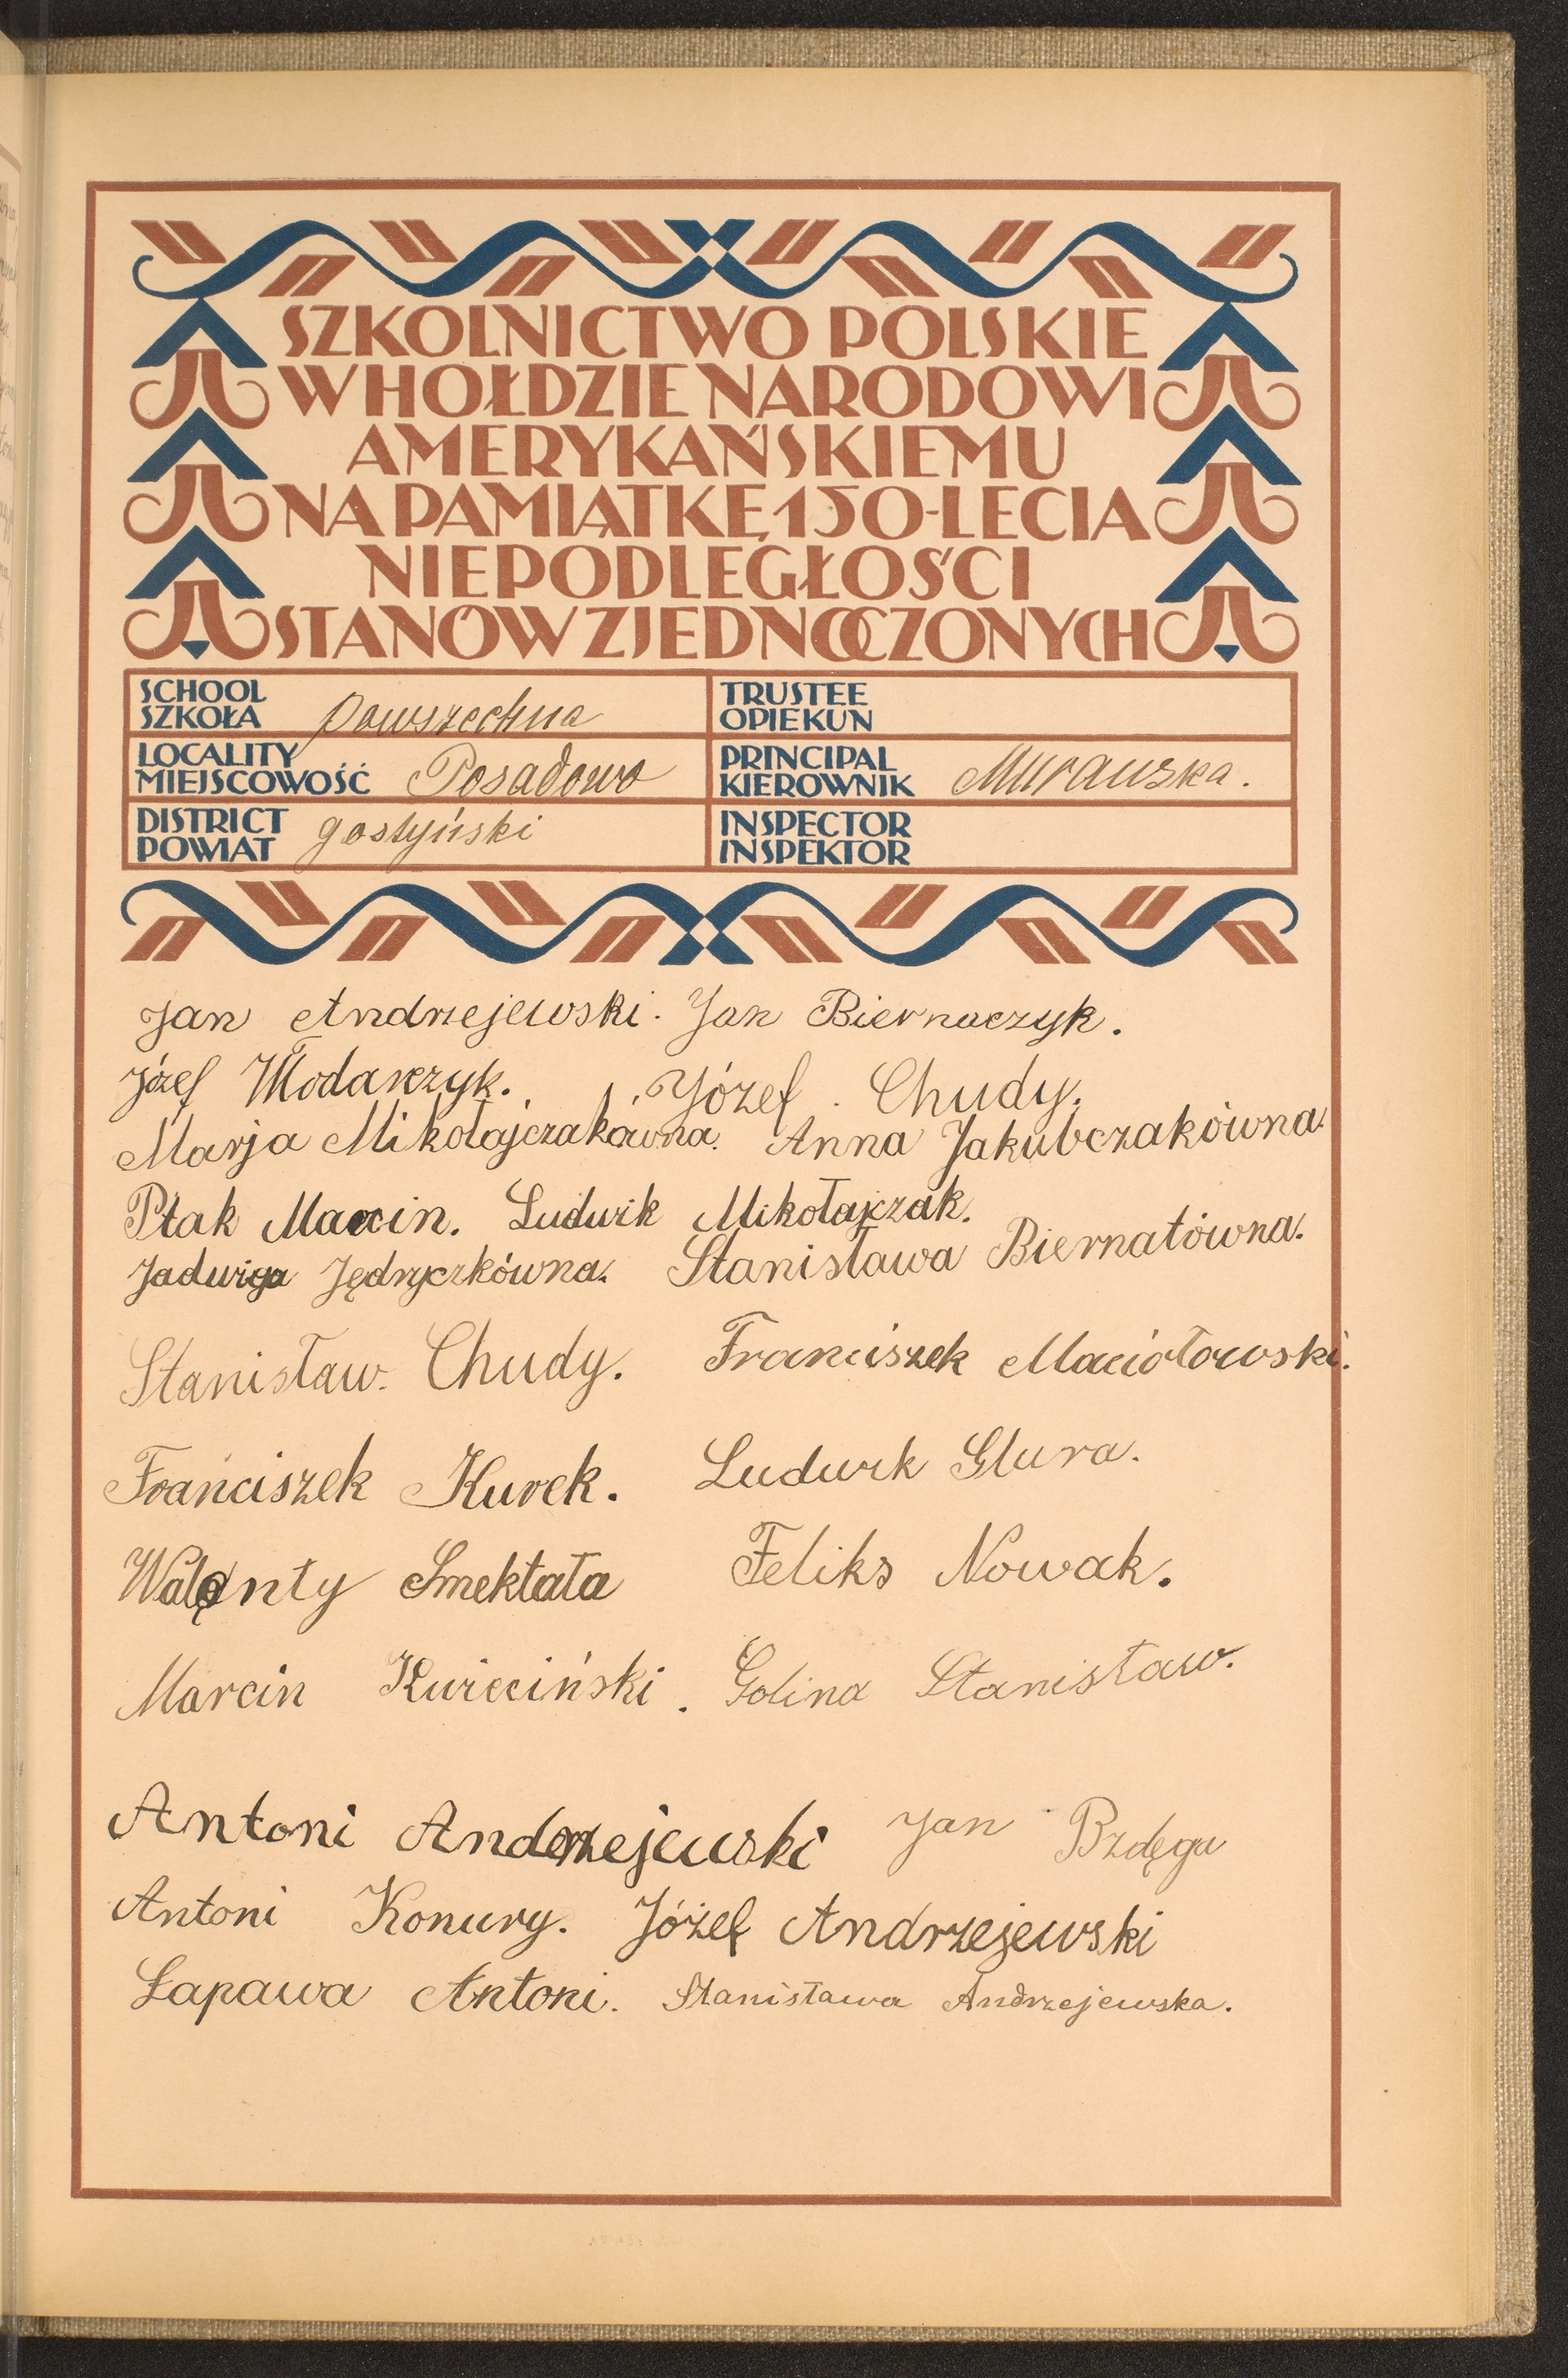 SZKOLNICTWO POLSKIE
W HOŁDZIE NARODOWI
AMERYKAŃSKIEMU
NA PAMIĄTKĘ 150-LECIA
NIEPODLEGŁOŚCI
STANÓW ZJEDNOCZONYCH
SCHOOL
SZKOŁA powszechna
TRUSTEE
OPIEKUN
LOCALITY
MIEJSCOWOŚĆ Posadowo
PRINCIPAL
KIEROWNIK Murawska.
DISTRICT
POWIAT gostyński
INSPECTOR
INSPEKTOR
Jan Andrzejewski. Jan Biernaczyk.
Józef Włodarczyk. Józef Chudy.
Marja Mikołajczakówna. Anna Jakubczakówna.
Ptak Marcin. Ludwik Mikołajczak.
Jadwiga Jędryczkówna. Stanisława Biernatówna.
Stanisław. Chudy. Franciszek Maciołowski.
Franciszek Kurek. Ludwik Glura.
Walenty Smektała Feliks Nowak.
Marcin Kwieciński. Golina Stanisław.
Antoni Andrzejewski Jan Bzdęga
Antoni Konury. Józef Andrzejewski
Łapawa Antoni. Stanisława Andrzejewska.